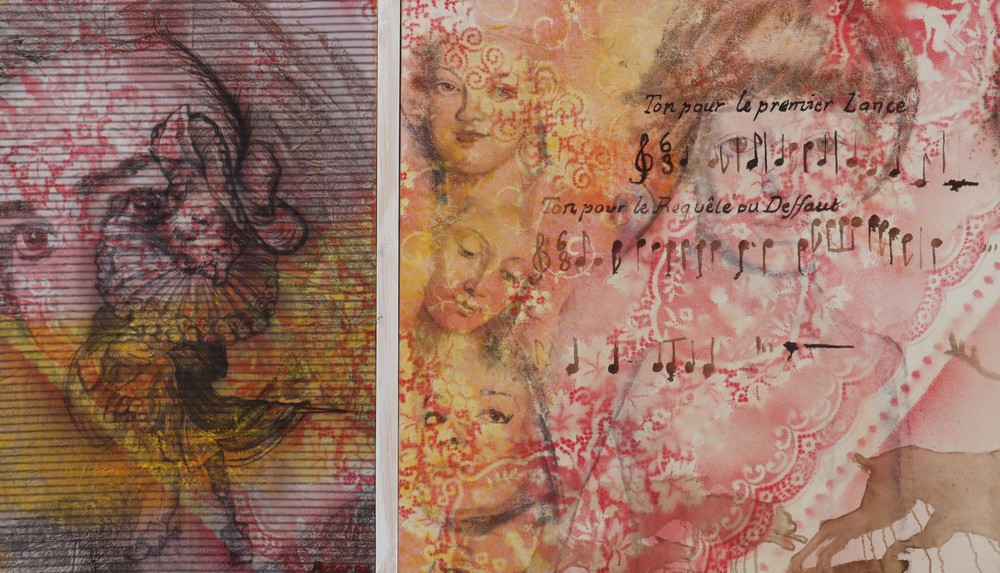 Ton pour le premier Lance
Ton pour le Requête ou Deffaut